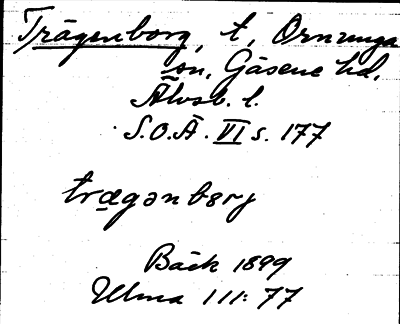 Trägenborg, t, Ornunga
sn, Gäsene hd,
Älvsb. l.
S.O.Ä. VI s. 177
trægənbarj
Bäck 1899
Ulma 111:77